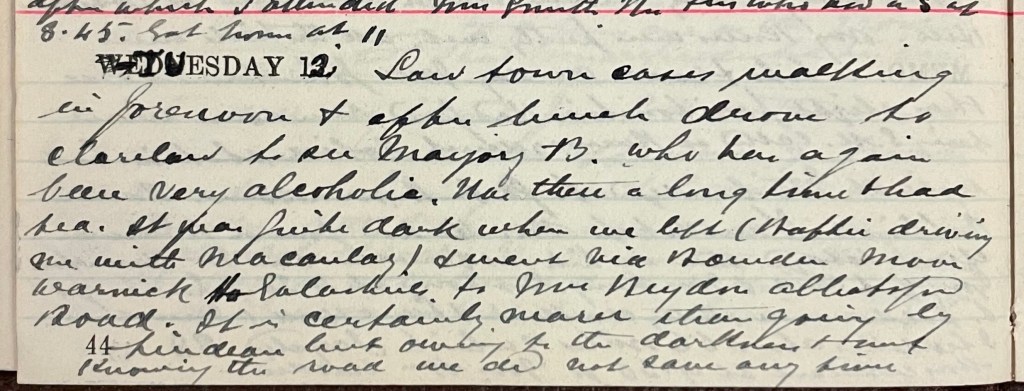 after which I attended Mrs Smith. The                who had a S at
8.45. Got home at 11
TUESDAY 12. Saw town cases walking
in forenoon & after lunch drove to
Clarelaw to see Marjory B. who has again
been very alcoholic. Was there a long time & had
tea. It was quite dark when we left (     driving
me with Macaulay) & went via Bowden Moor
     to Galashiels to Mrs      Abbotsford
Road. It is certainly nearer than going by
44
Lindean but owing to the darkness & not
knowing the road we did not save any time